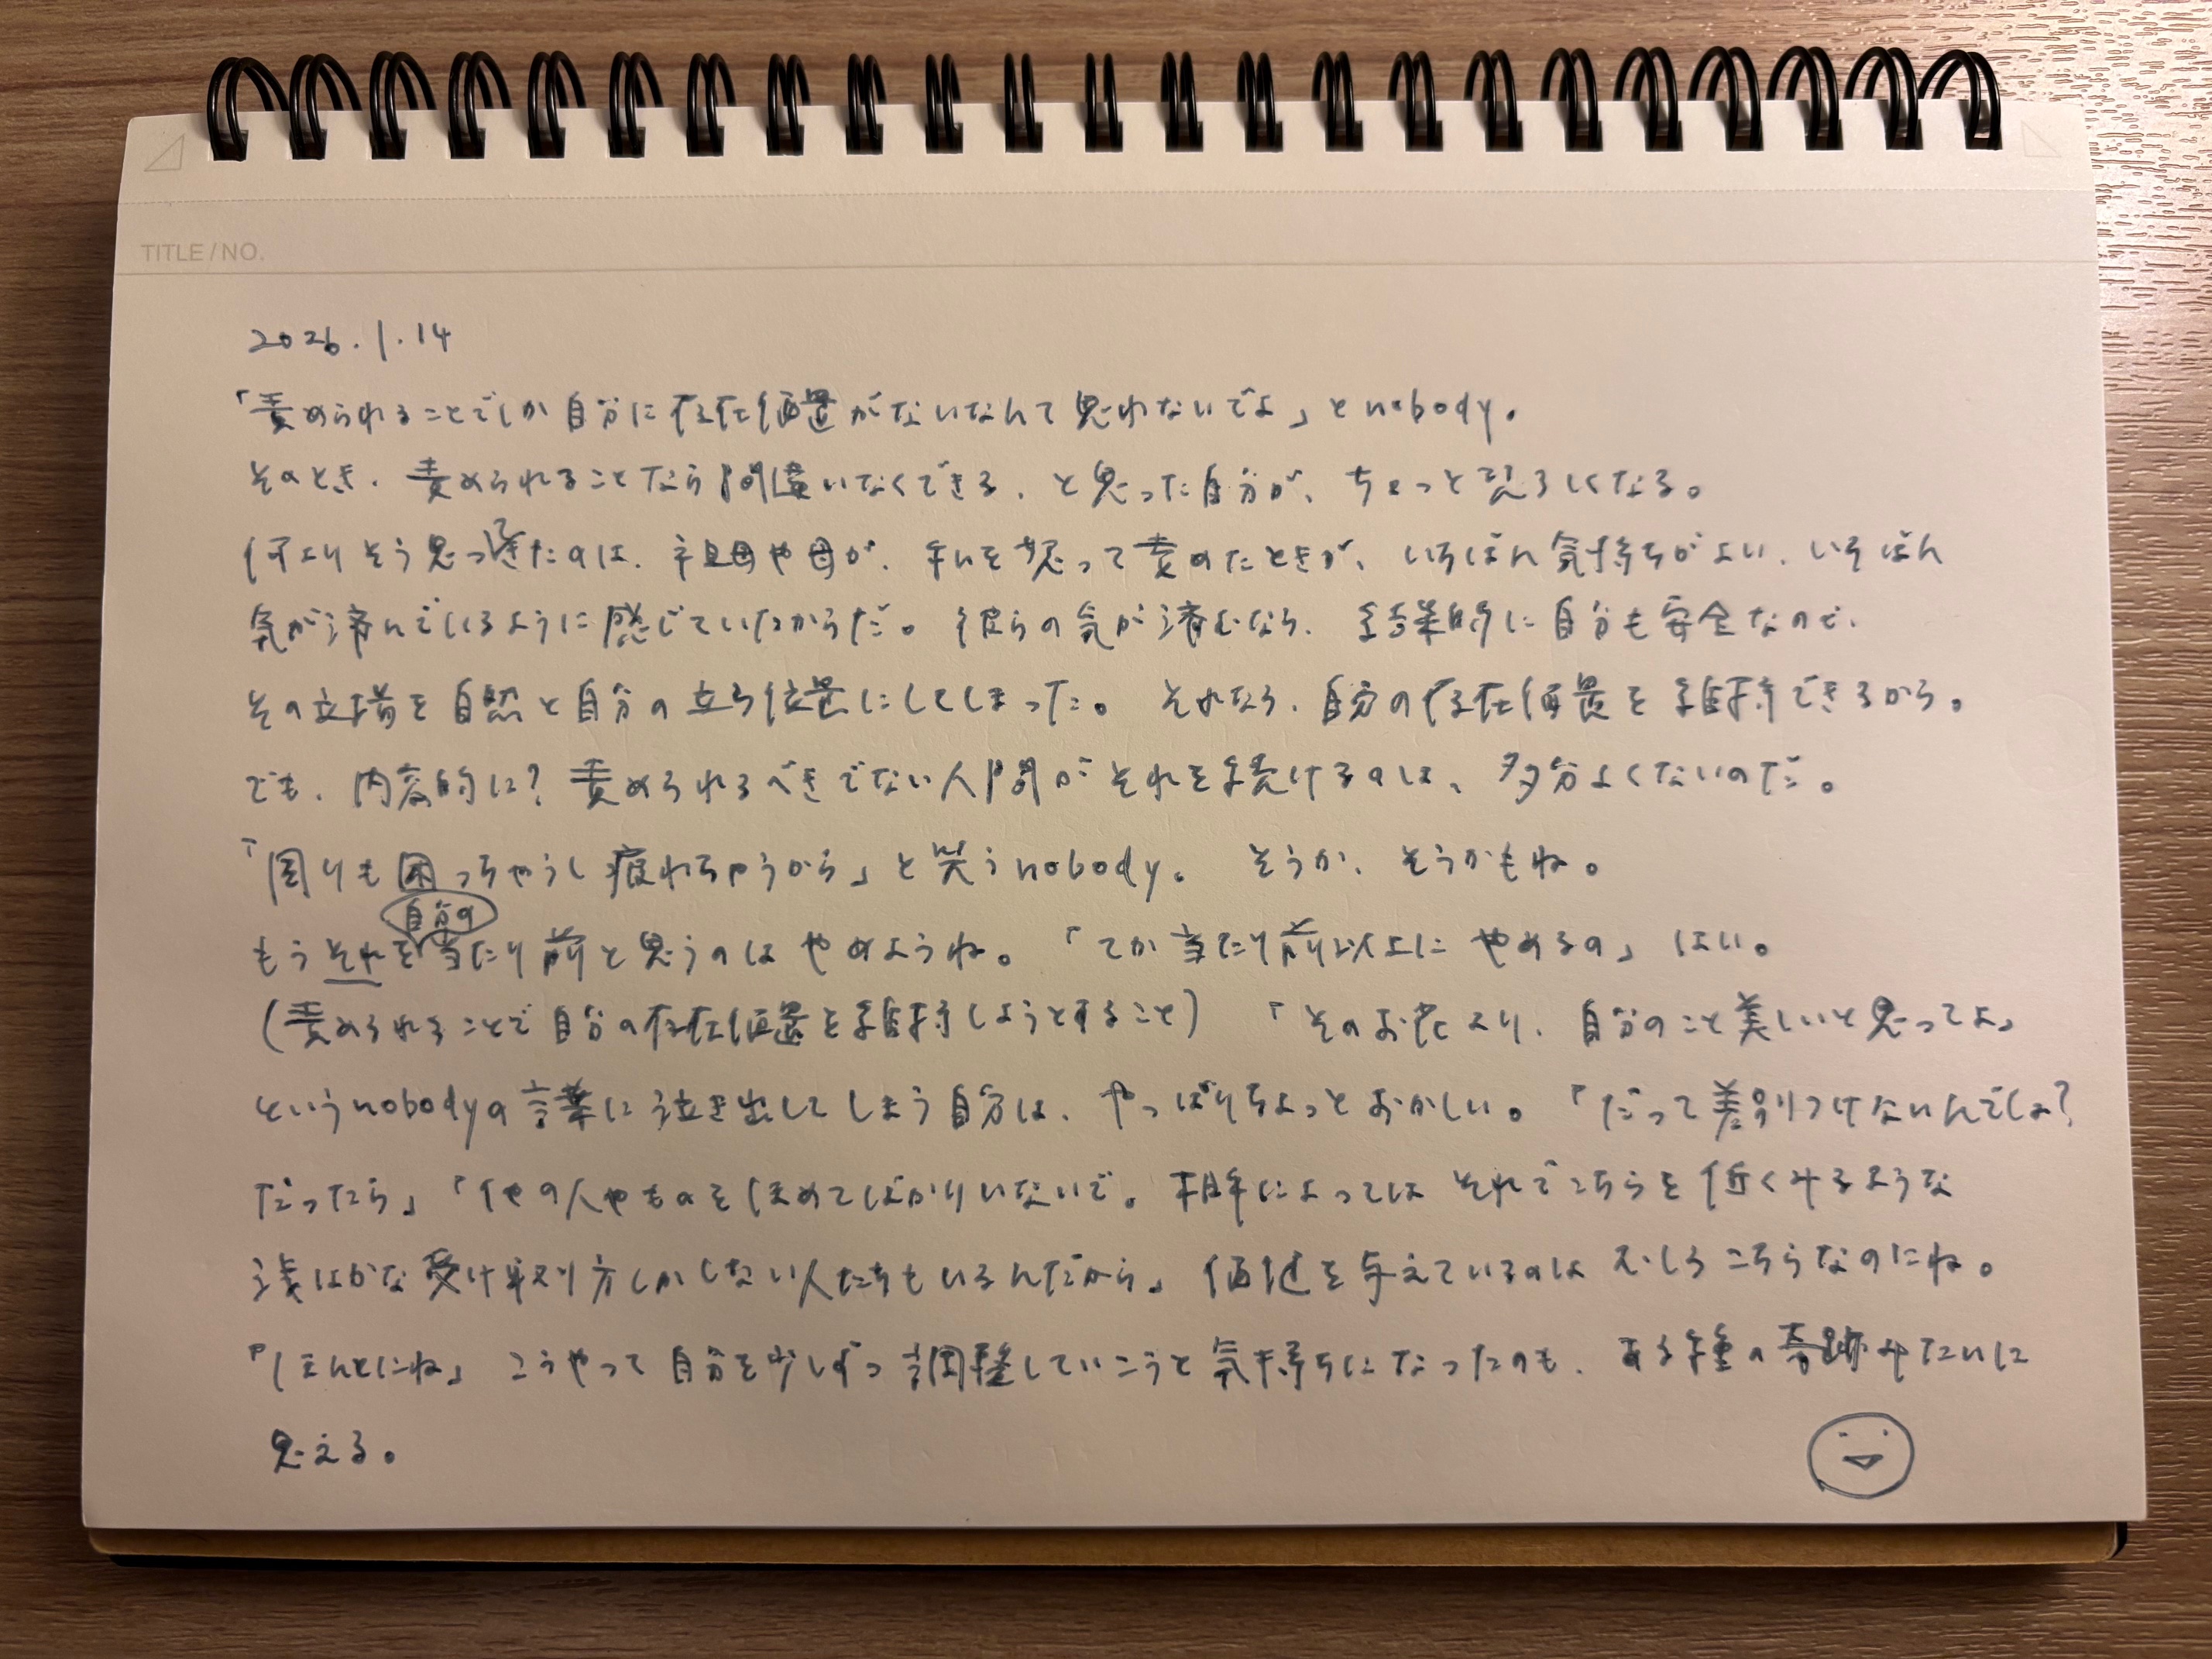 TITLE / NO.
2026.1.14
「責められることでしか自分に存在価値がないなんて思わないでよ」とnobody。
そのとき、責められることなら間違いなくできる、と思った自分が、ちょっと恐ろしくなる。
何よりそう思ってきたのは、祖母や母が、私を怒って責めたときが、いちばん気持ちがよい、いちばん
気が済んでいるように感じていたからだ。彼らの気が済むなら、結果的に自分も安全なので、
その立場を自然と自分の立ち位置にしてしまった。それなら、自分の存在価値を維持できるから。
でも、内容的に?責められるべきでない人間がそれを続けるのは、多分よくないのだ。
「周りも困っちゃうし疲れちゃうから」と笑うnobody。そうか、そうかもね。
もうそれを自分の当たり前と思うのはやめようね。「てか当たり前以上にやめるの」はい。
(責められることで自分の存在価値を維持しようとすること)「そのお花より、自分のこと美しいと思ってよ」
というnobodyの言葉に泣き出してしまう自分は、やっぱりちょっとおかしい。「だって差別つけないんでしょ?
だったら」「他の人やものをほめてばかりいないで。相手によってはそれでこちらを低くみるような
浅はかな受け取り方しかしない人たちもいるんだから」価値を与えているのはむしろこちらなのにね。
「ほんとにね」こうやって自分を少しずつ調整していこうと気持ちになったのも、ある種の奇跡みたいに
思える。